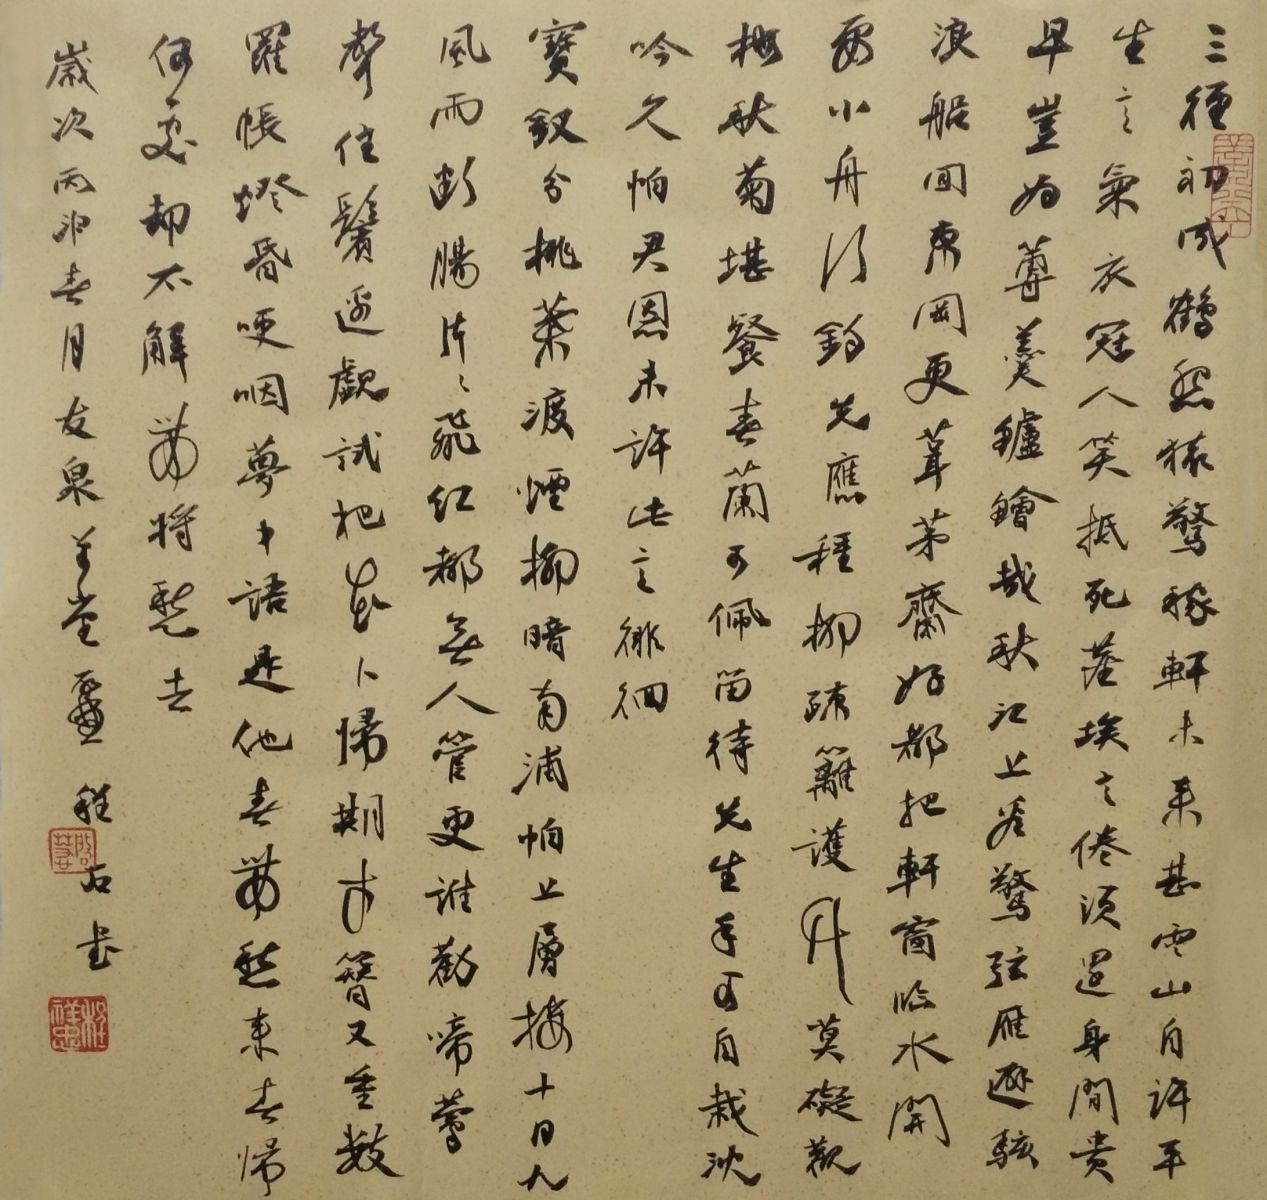 三徑初成鶴怨猿驚稼軒未來甚雲山自許平
生之氣衣冠人笑抵死塵埃之倦須還身閒貴
早豈為蓴羹鱸鱠哉秋江上看驚弦雁避駭
浪船回東岡更葺茅齋好都把軒窗臨水開
要小舟行釣先應種柳疏籬護竹莫礙觀
梅秋菊堪餐春蘭可佩留待先生手自栽沈
吟久怕君恩未許此意徘徊
寶釵分桃葉渡煙柳暗南浦怕上層樓十日九
風雨斷腸片片飛紅都無人管更誰勸啼鶯
聲住鬢邊覷試把花卜歸期才簪又重數
羅帳燈昏哽咽夢中語是他春帶愁來春歸
何處却不解帶將愁去
歲次丙申春月友泉草堂程石書